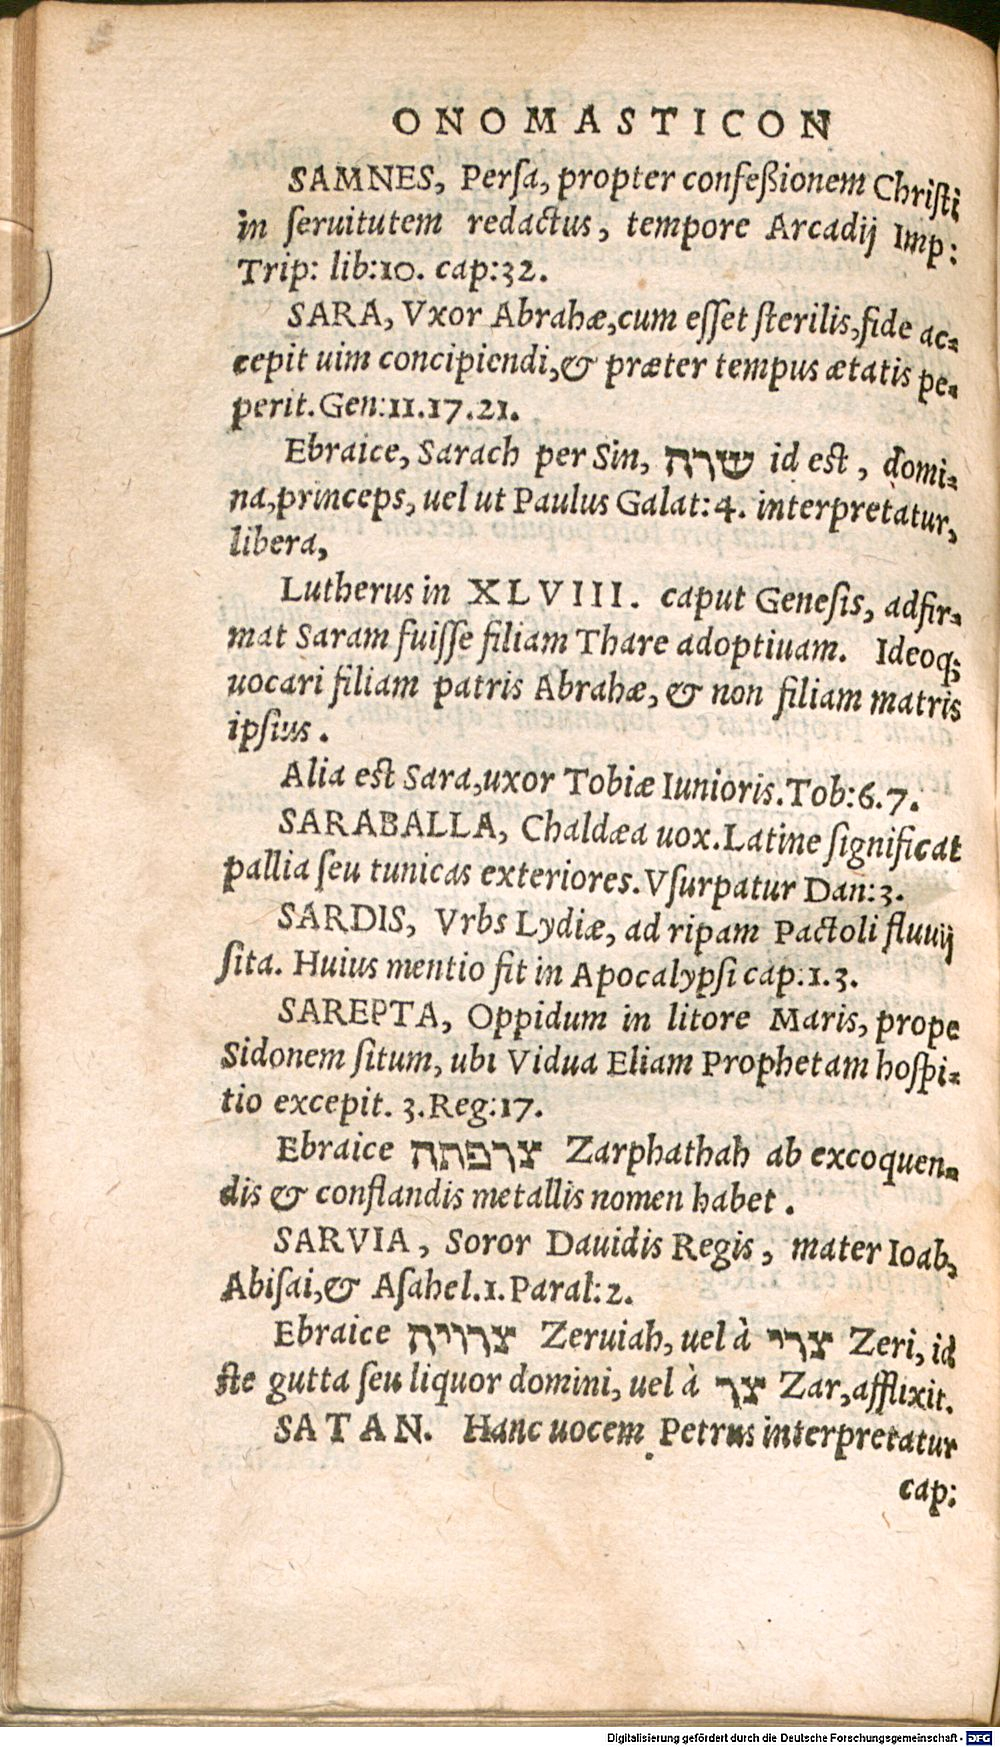 ONOMASTICON
SAMNES, Perſa, propter confeßionem Chriſti
in ſeruitutem redactus, tempore Arcadij Imp:
Trip: lib:10. cap:32.
SARA, Vxor Abrahæ,cum eſſet ſterilis,fide ac-
cepit uim concipiendi,& præter tempus ætatis pe-
perit.Gen:11.17.21.
Ebraice, Sarach per Sin, שרה id est, domi-
na,princeps, uel ut Paulus Galat:4. interpretatur,
libera,
Lutherus in XLVIII. caput Geneſis, adfir-
mat Saram fuiſſe filiam Thare adoptiuam. Ideoq;
uocari filiam patris Abrahæ, & non filiam matris
ipſius.
Alia est Sara,uxor Tobiæ Iunioris.Tob:6.7.
SARABALLA, Chaldæa uox.Latine ſignificat
pallia ſeu tunicas exteriores.Vſurpatur Dan:3.
SARDIS, Vrbs Lydiæ, ad ripam Pactoli fluuij
ſita. Huius mentio fit in Apocalypſi cap:1.3.
SAREPTA, Oppidum in litore Maris, prope
Sidonem ſitum, ubi Vidua Eliam Prophetam hoſpi-
tio excepit. 3.Reg:17.
Ebraice צרפתה Zarphathah ab excoquen-
dis & conflandis metallis nomen habet.
SARVIA, Soror Dauidis Regis, mater Ioab,
Abiſai,& Aſahel.1.Paral:2.
Ebraice צרויה Zeruiah, uel à צרי Zeri, id
ste gutta ſeu liquor domini, uel à צר Zar,afflixit.
SATAN. Hanc uocem Petrus interpretatur
cap:
Digitalisierung gefördert durch die Deutsche Forschungsgemeinschaft - DFG